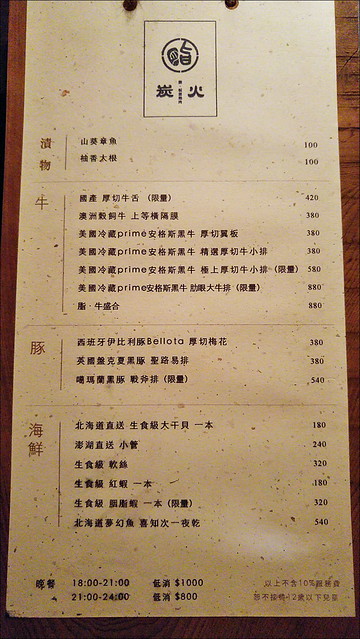 炭 火
漬物
山葵章魚 100
柚香大根 100
牛
國產 厚切牛舌 (限量) 420
澳洲穀飼牛 上等橫隔膜 380
美國冷藏prime安格斯黑牛 厚切翼板 380
美國冷藏prime安格斯黑牛 精選厚切牛小排 380
美國冷藏prime安格斯黑牛 極上厚切牛小排 (限量) 580
美國冷藏prime安格斯黑牛 肋眼大牛排 (限量) 880
脂·牛盛合 880
豚
西班牙伊比利豚Bellota 厚切梅花 380
英國盤克夏黑豚 聖路易排 380
噶瑪蘭黑豚 戰斧排 (限量) 540
海鮮
北海道直送 生食級大干貝 一本 180
澎湖直送 小管 240
生食級 軟絲 320
生食級 紅蝦 一本 180
生食級 胭脂蝦 一本 (限量) 320
北海道夢幻魚 喜知次一夜乾 540
晚餐 18:00-21:00 低消 $1000
21:00-24:00 低消 $800
以上不含10%服務費
恕不接待12歲以下兒童